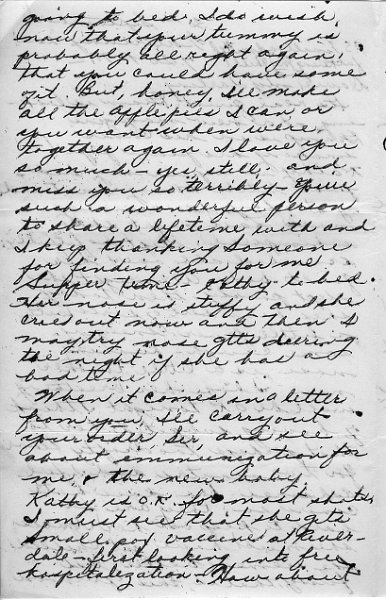 going to bed. I do wish,
now that your tummy is
probably all right again,
that you could have some
of it. But, honey, I'll make
all the apple pies I can or
you want when we're
together again. I love you
so much - yes, still; and
miss you so terribly - You're
such a wonderful person
to share a lifetime with and
I keep thanking Someone
for finding you for me
Supper time - Kathy to bed.
Her nose is stuffy and she
cries out now and then. I
may try nose gtts during
the night if she has a
bad time.
When it comes in a letter
from you, I'll carry out
your order Sir, and see
about immunization for
me, & the new baby.
Kathy is O.K. for most shots
I must see that she gets
small pox vaccine at River-
dale - first looking into free
hospitalization. How about